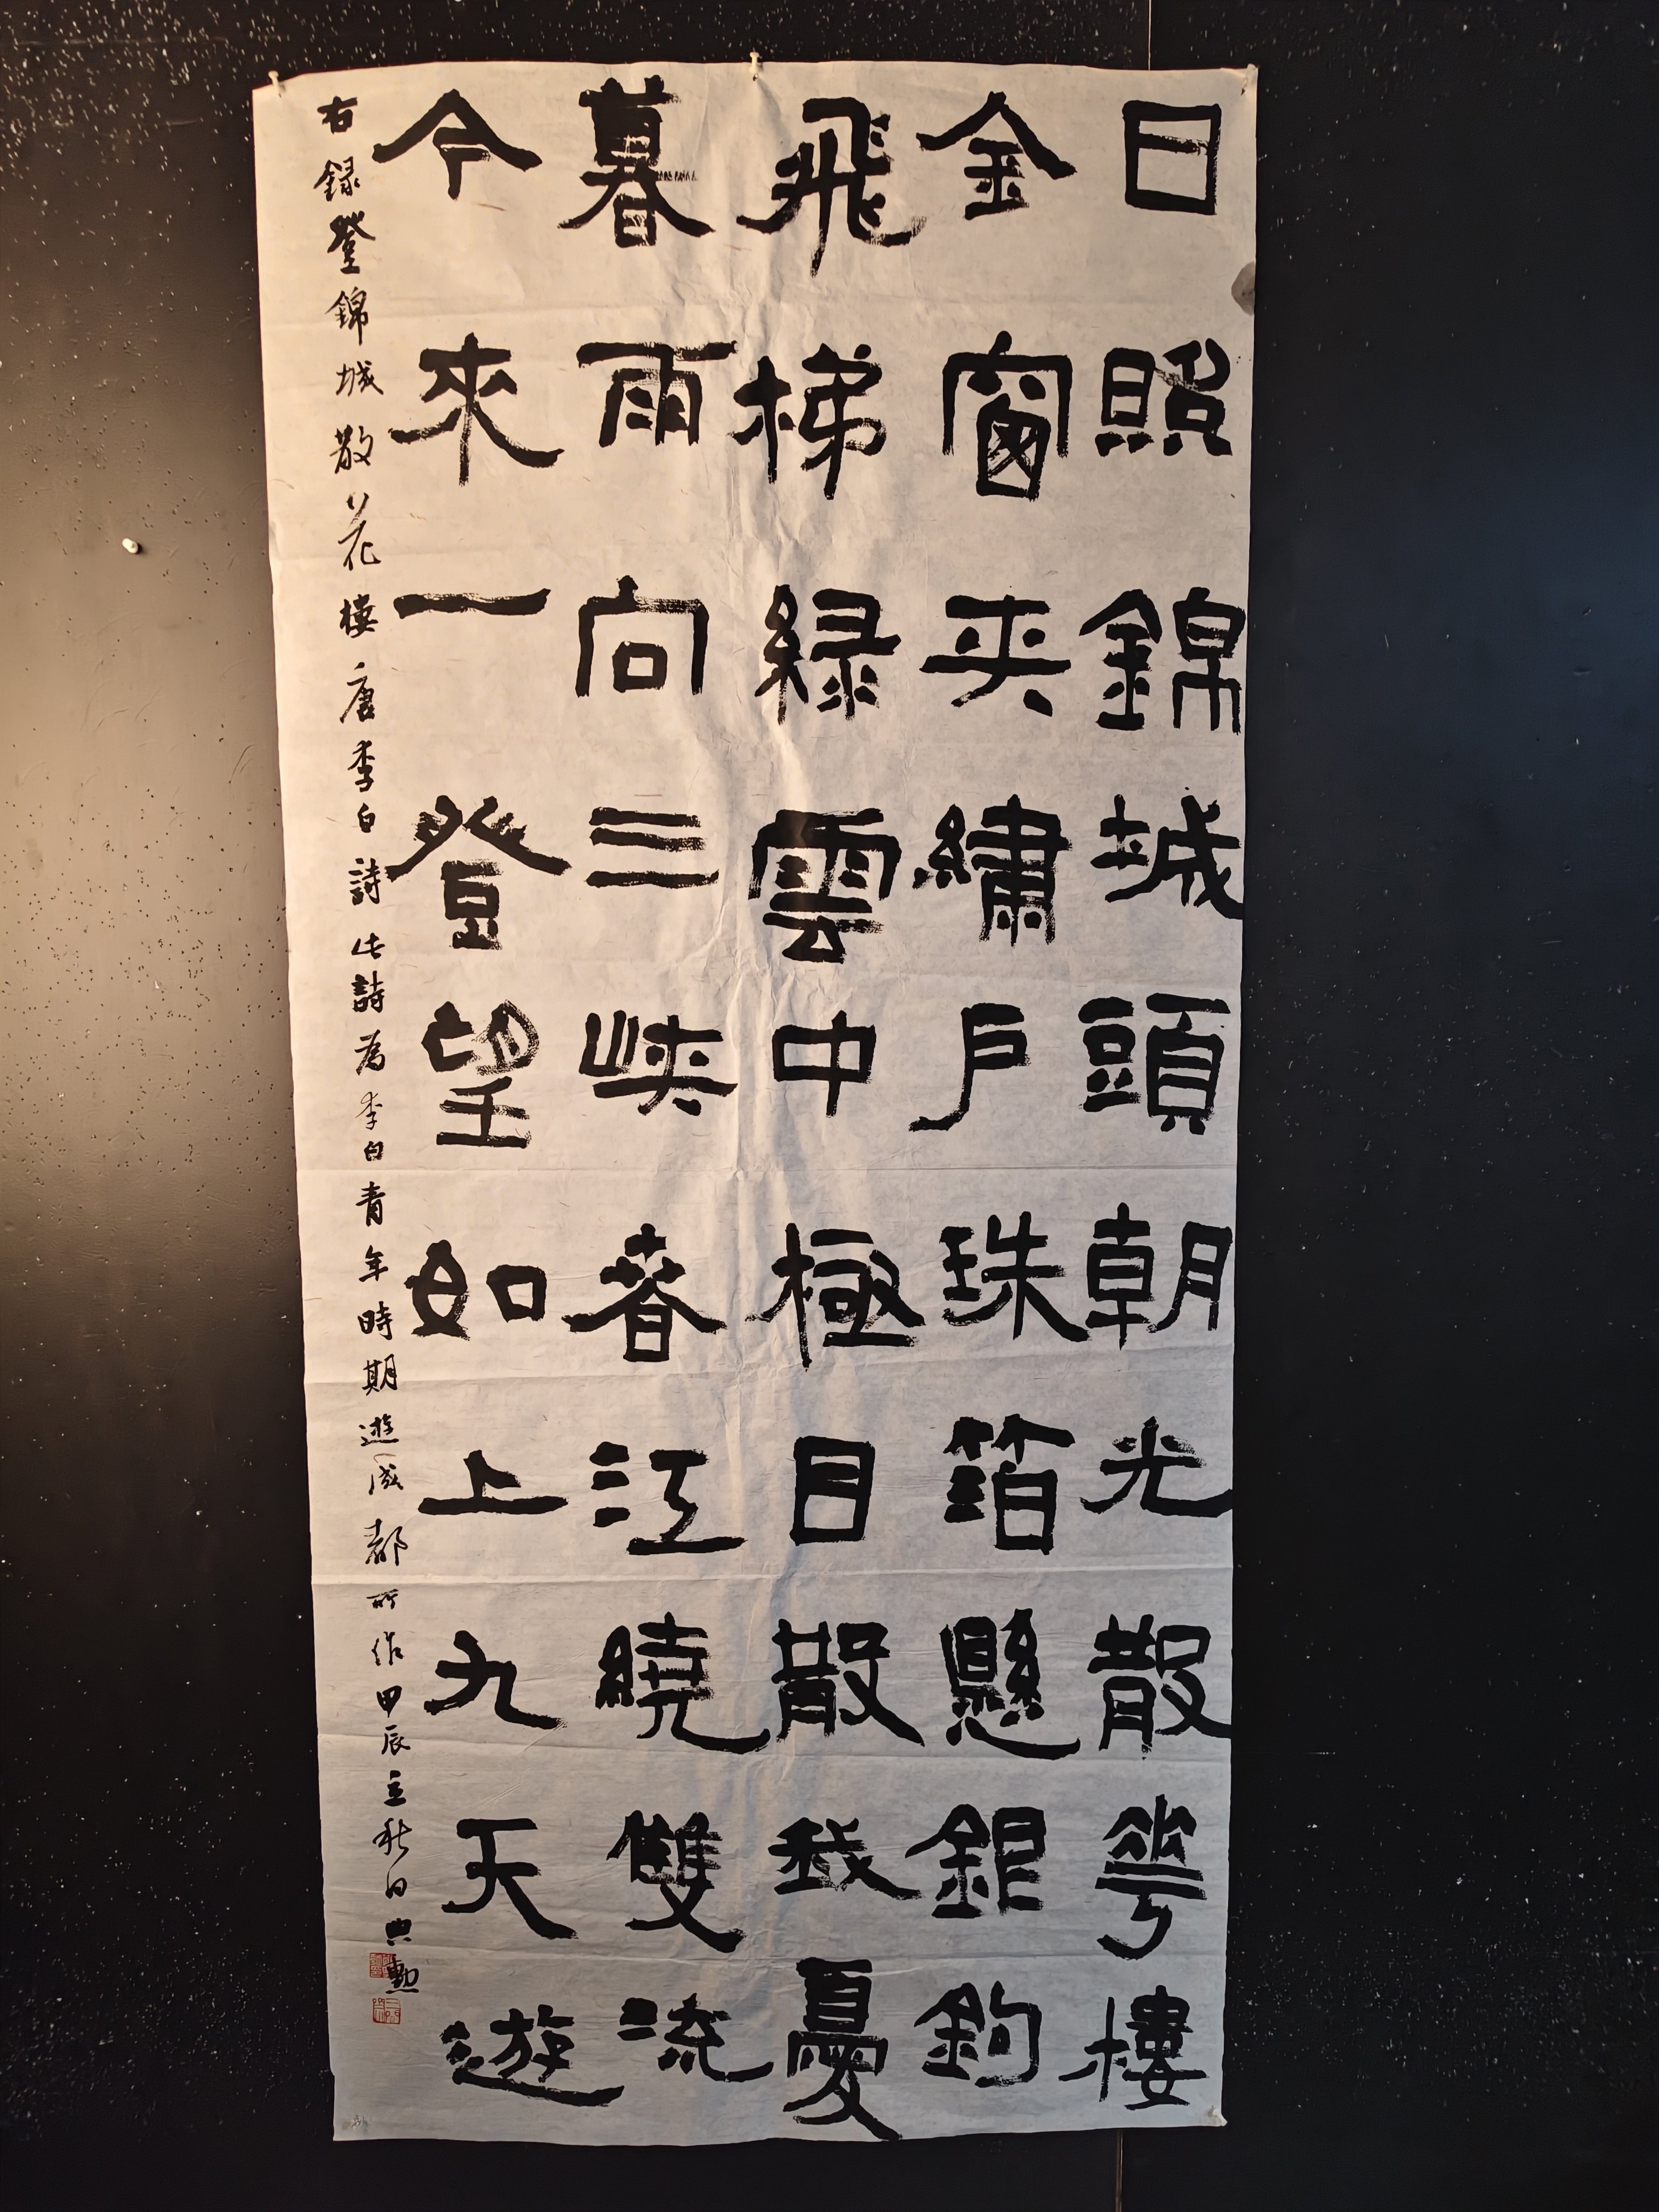 日照錦城頭朝光散華樓
金窗夾繡戶珠箔懸銀鉤
飛梯緑雲中極目散我憂
暮雨向三峽春江繞雙流
今來一登望如上九天遊
右録登錦城散花樓唐李白詩此詩為李白青年時期遊成都所作甲辰立秋日興勳